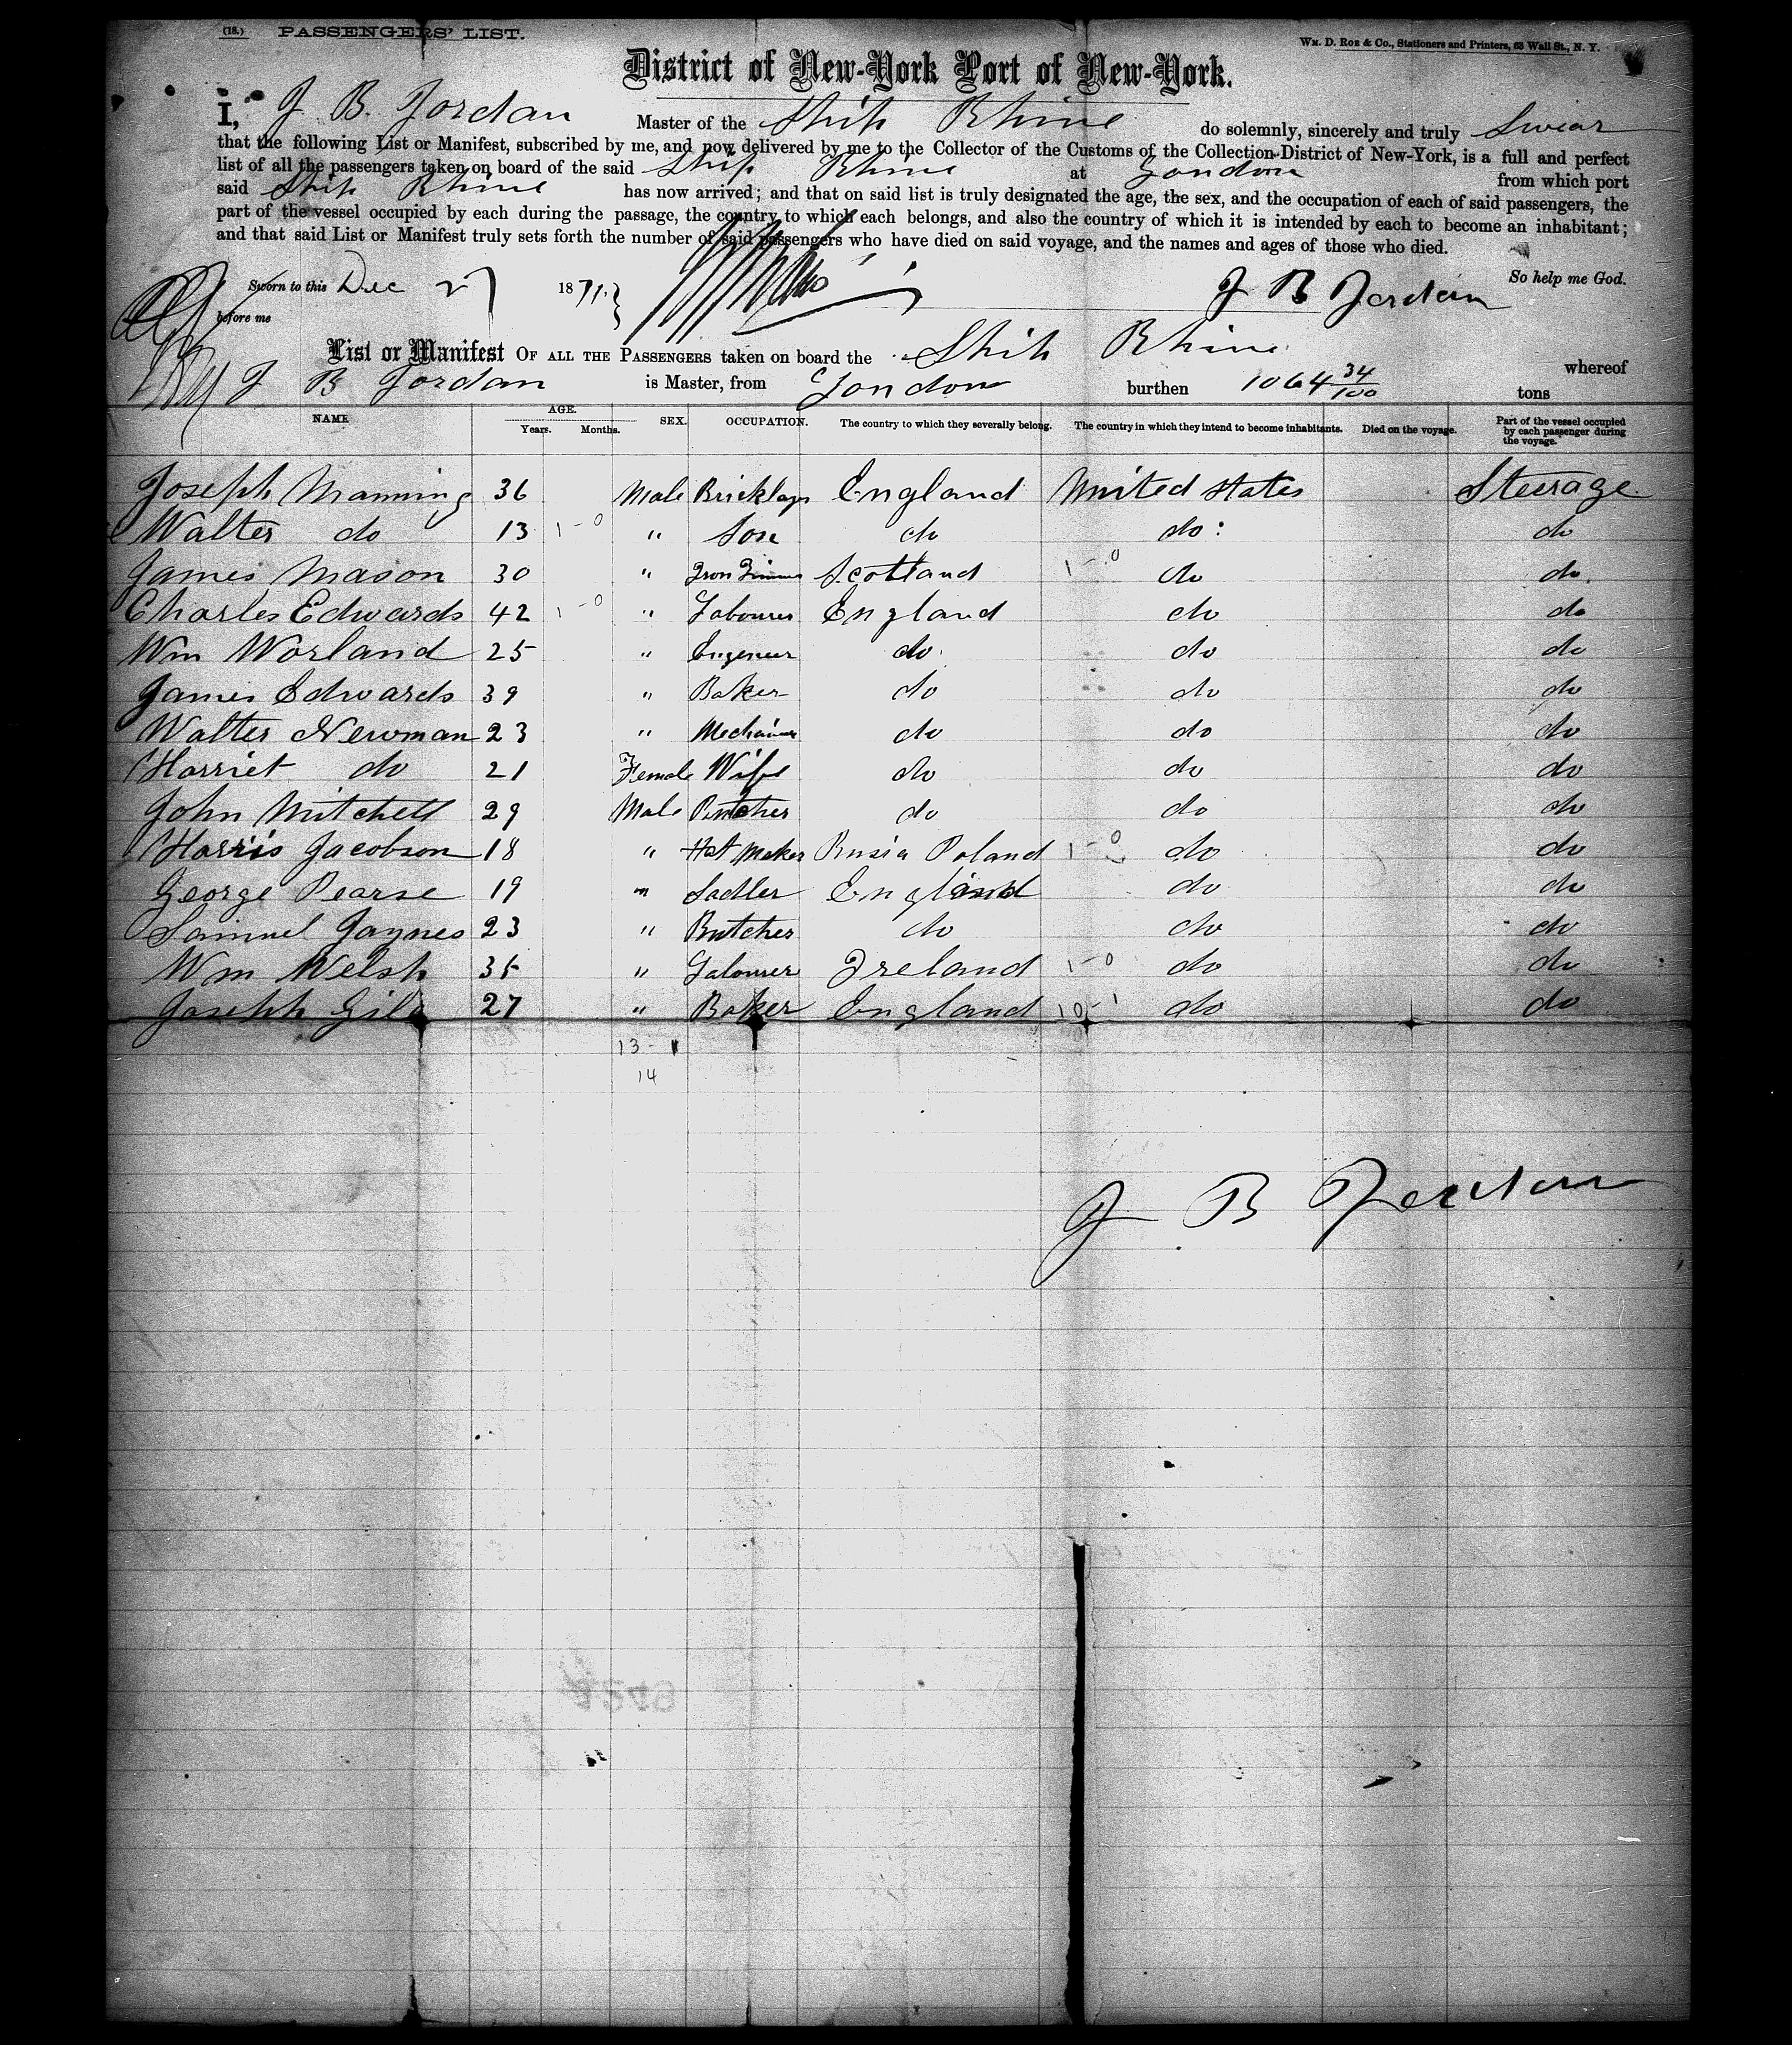 (18.) PASSENGERS' LIST.
Wm. D. Roe & Co., Stationers and Printers, 63 Wall St., N. Y.
District of New-York Port of New-York.
I, J B. Jordan Master of the Ship Rhine do solemnly, sincerely and truly Swear
that the following List or Manifest, subscribed by me, and now delivered by me to the Collector of the Customs of the Collection District of New-York, is a full and perfect
list of all the passengers taken on board of the said Ship Rhine at London from which port
said Ship Rhine has now arrived; and that on said list is truly designated the age, the sex, and the occupation of each of said passengers, the
part of the vessel occupied by each during the passage, the country to which each belongs, and also the country of which it is intended by each to become an inhabitant;
and that said List or Manifest truly sets forth the number of said passengers who have died on said voyage, and the names and ages of those who died.
So help me God.
Sworn to this Dec 27 1871. J B Jordan
before me
List or Manifest OF ALL THE PASSENGERS taken on board the Ship Rhine whereof
J B Jordan is Master, from London burthen 1064 34/100 tons
NAME AGE. Years. Months. SEX. OCCUPATION. The country to which they severally belong. The country in which they intend to become inhabitants. Died on the voyage. Part of the vessel occupied by each passenger during the voyage.
Joseph Manning 36 Male Bricklayr England United States Steerage
Walter do 13 1-0 " Son do do: do
James Mason 30 " Iron Scotland 1-0 do do.
Charles Edwards 42 1-0 " Labourer England do do
Wm Worland 25 " Engeneer do do do
James Edwards 39 " Baker do do do
Walter Newman 23 " do do do
Harriet do 21 Female Wife do do do
John Mitchell 29 Male Butcher do do do
Harris Jacobson 18 " Hat Maker Rusia Poland 1-0 do do
George Pearse 19 " Sadler England do do
Samuel Jaynes 23 " Butcher do do do
Wm Welsh 35 " Labourer Ireland 1-0 do do
Joseph Gile 27 " Baker England 10-1 do do
13-1
14
J B Jordan